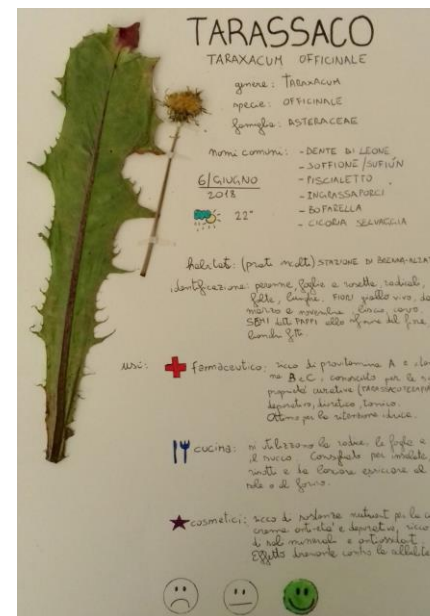 TARASSACO
TARAXACUM OFFICINALE
genere: TARAXACUM
specie: OFFICINALE
famiglia: ASTERACEAE
nomi comuni: - DENTE DI LEONE
- SOFFIONE/SUFIÚN
- PISCIALETTO
- INGRASSAPORCI
- BOFARELLA
- CICORIA SELVAGGIA
6/GIUGNO
2018
22°
habitat: (prati incolti) STAZIONE DI BRENNA-ALZA
identificazione: perenne, foglie a rosetta, radicali,
folte, lunghe. FIORI giallo vivo, da
marzo a novembre, liscio, cavo.
SEMI detti PAPPI allo sfiorire del fiore
bianchi fitti.
usi: farmaceutico: ricco di provitamina A e
B e C, conosciuto per le
proprietà curative
depurativo, diuretico, tonico.
Ottimo per la ritenzione idrica.
cucina: si utilizzano le radici, le foglie e
il succo. Consigliato per insalate
risotti e da lasciare essiccare al
sole o al forno.
cosmetici: ricco di sostanze nutrienti per la
creme anti-età e depurative, ricco
di sali minerali e antiossidanti.
Effetto drenante contro la cellulite